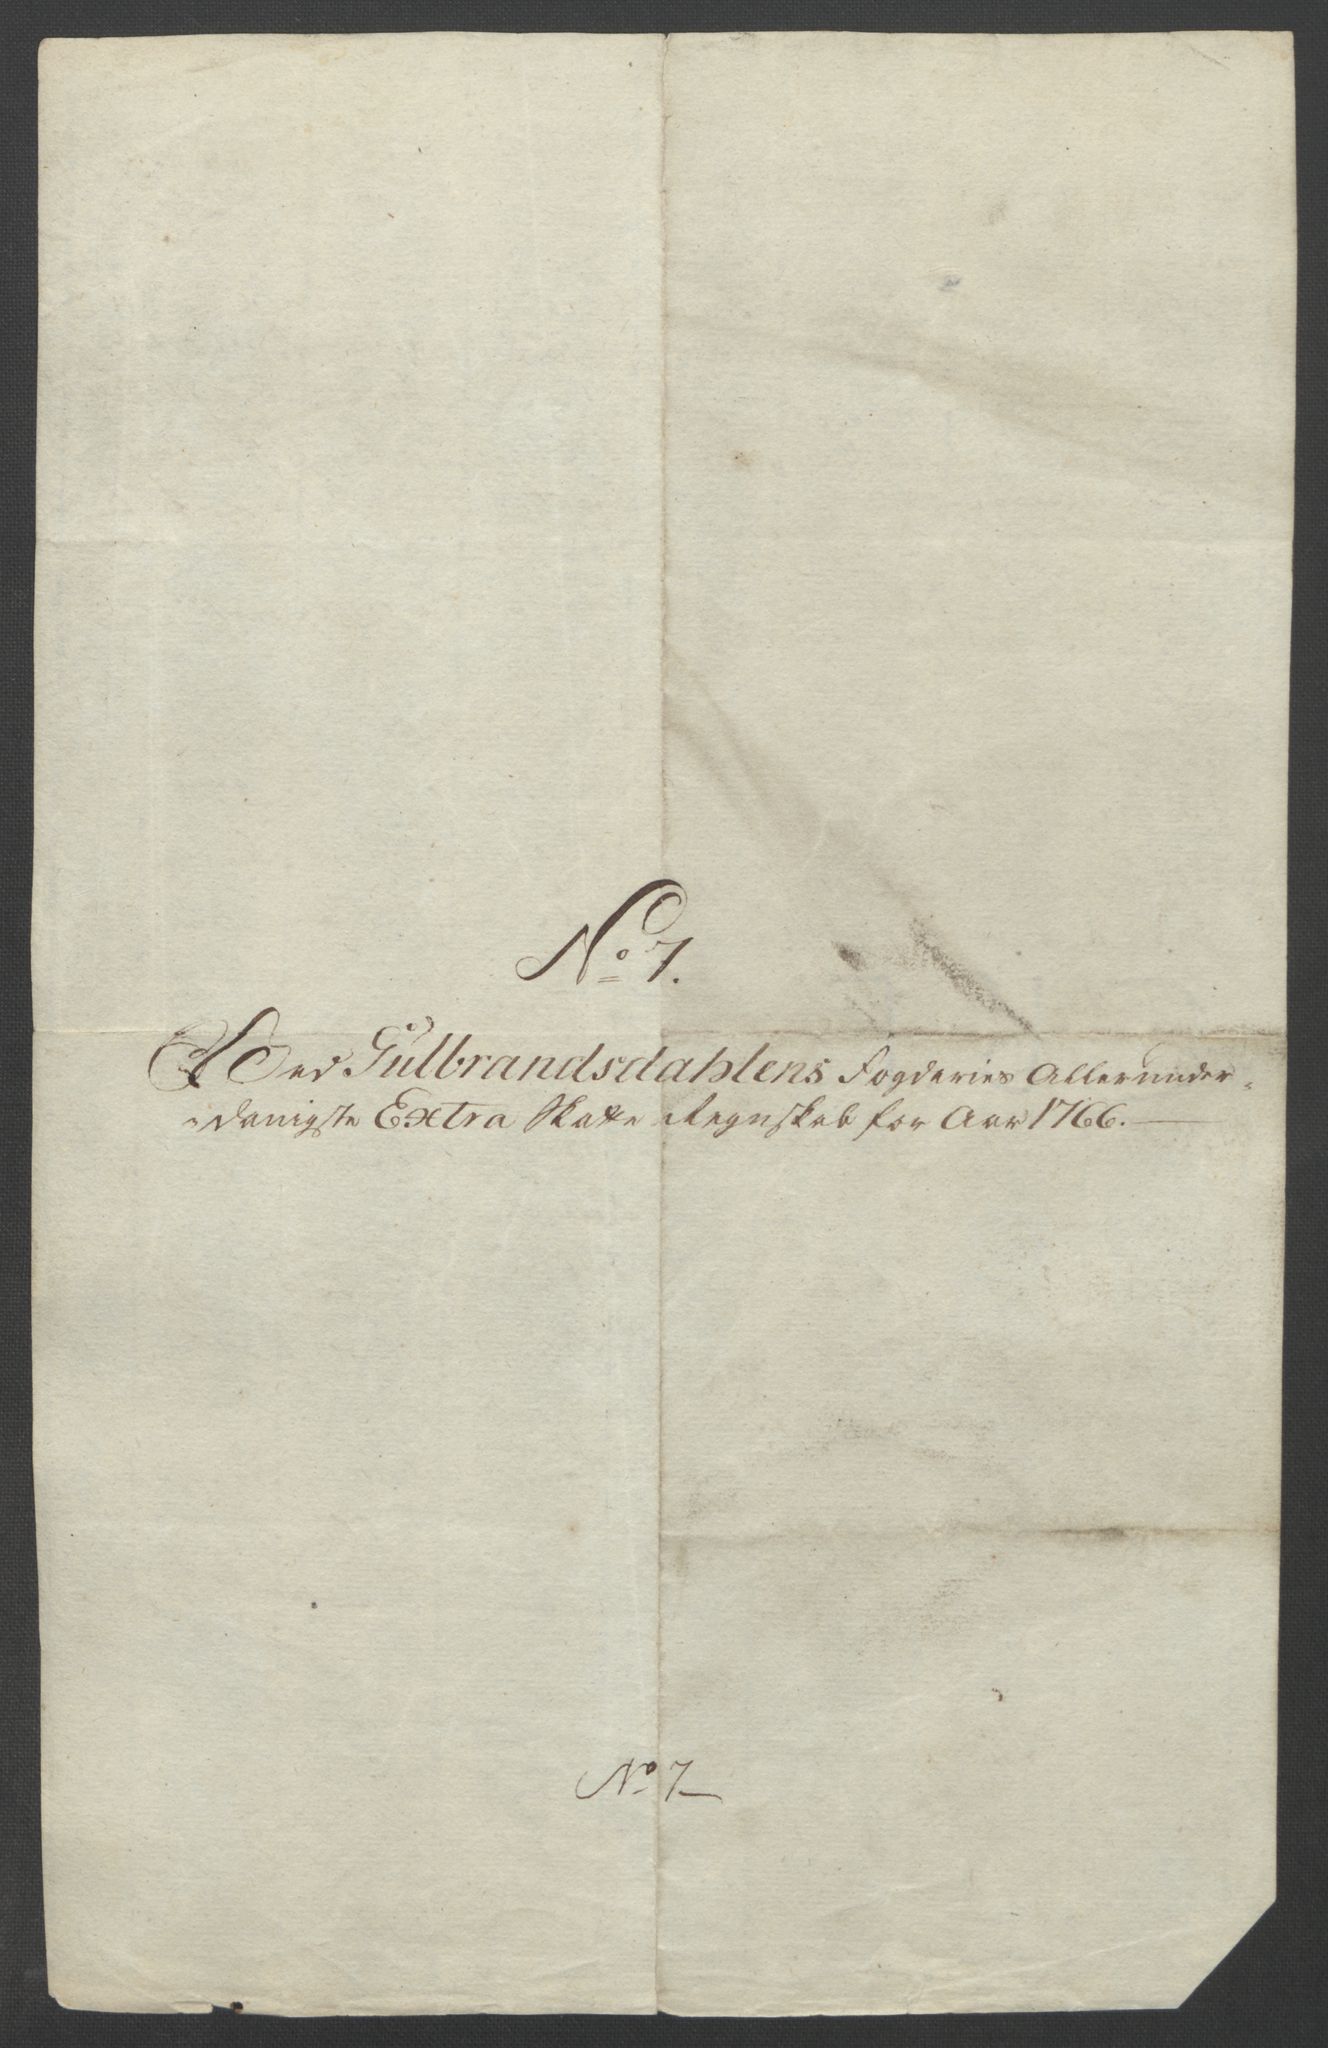 No 7.
Ved Gulbrandsdahlens Fogderies Allerunder-
danigste Extra Skatte Regnskab for Aar 1766.
No 7